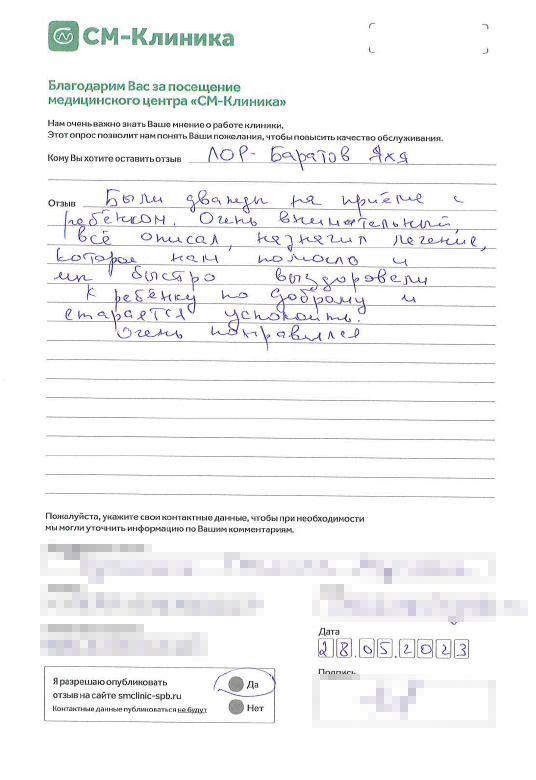 СМ-Клиника
Благодарим Вас за посещение
медицинского центра «СМ-Клиника»
Нам очень важно знать Ваше мнение о работе клиники.
Этот опрос позволит нам понять Ваши пожелания, чтобы повысить качество обслуживания.
Кому Вы хотите оставить отзыв ЛОР- Баратов Яхя
Отзыв Были дважды на приёме с
ребёнком. Очень внимательный,
всё описал, назначил лечение,
которое нам помогло и
мы быстро выздоровели
К ребёнку по доброму и
старается успокоить.
Очень понравился
Пожалуйста, укажите свои контактные данные, чтобы при необходимости
мы могли уточнить информацию по Вашим комментариям.
Дата
28.05.2023
Подпись
Я разрешаю опубликовать
отзыв на сайте smclinic-spb.ru
Контактные данные публиковаться не будут
Да
Нет